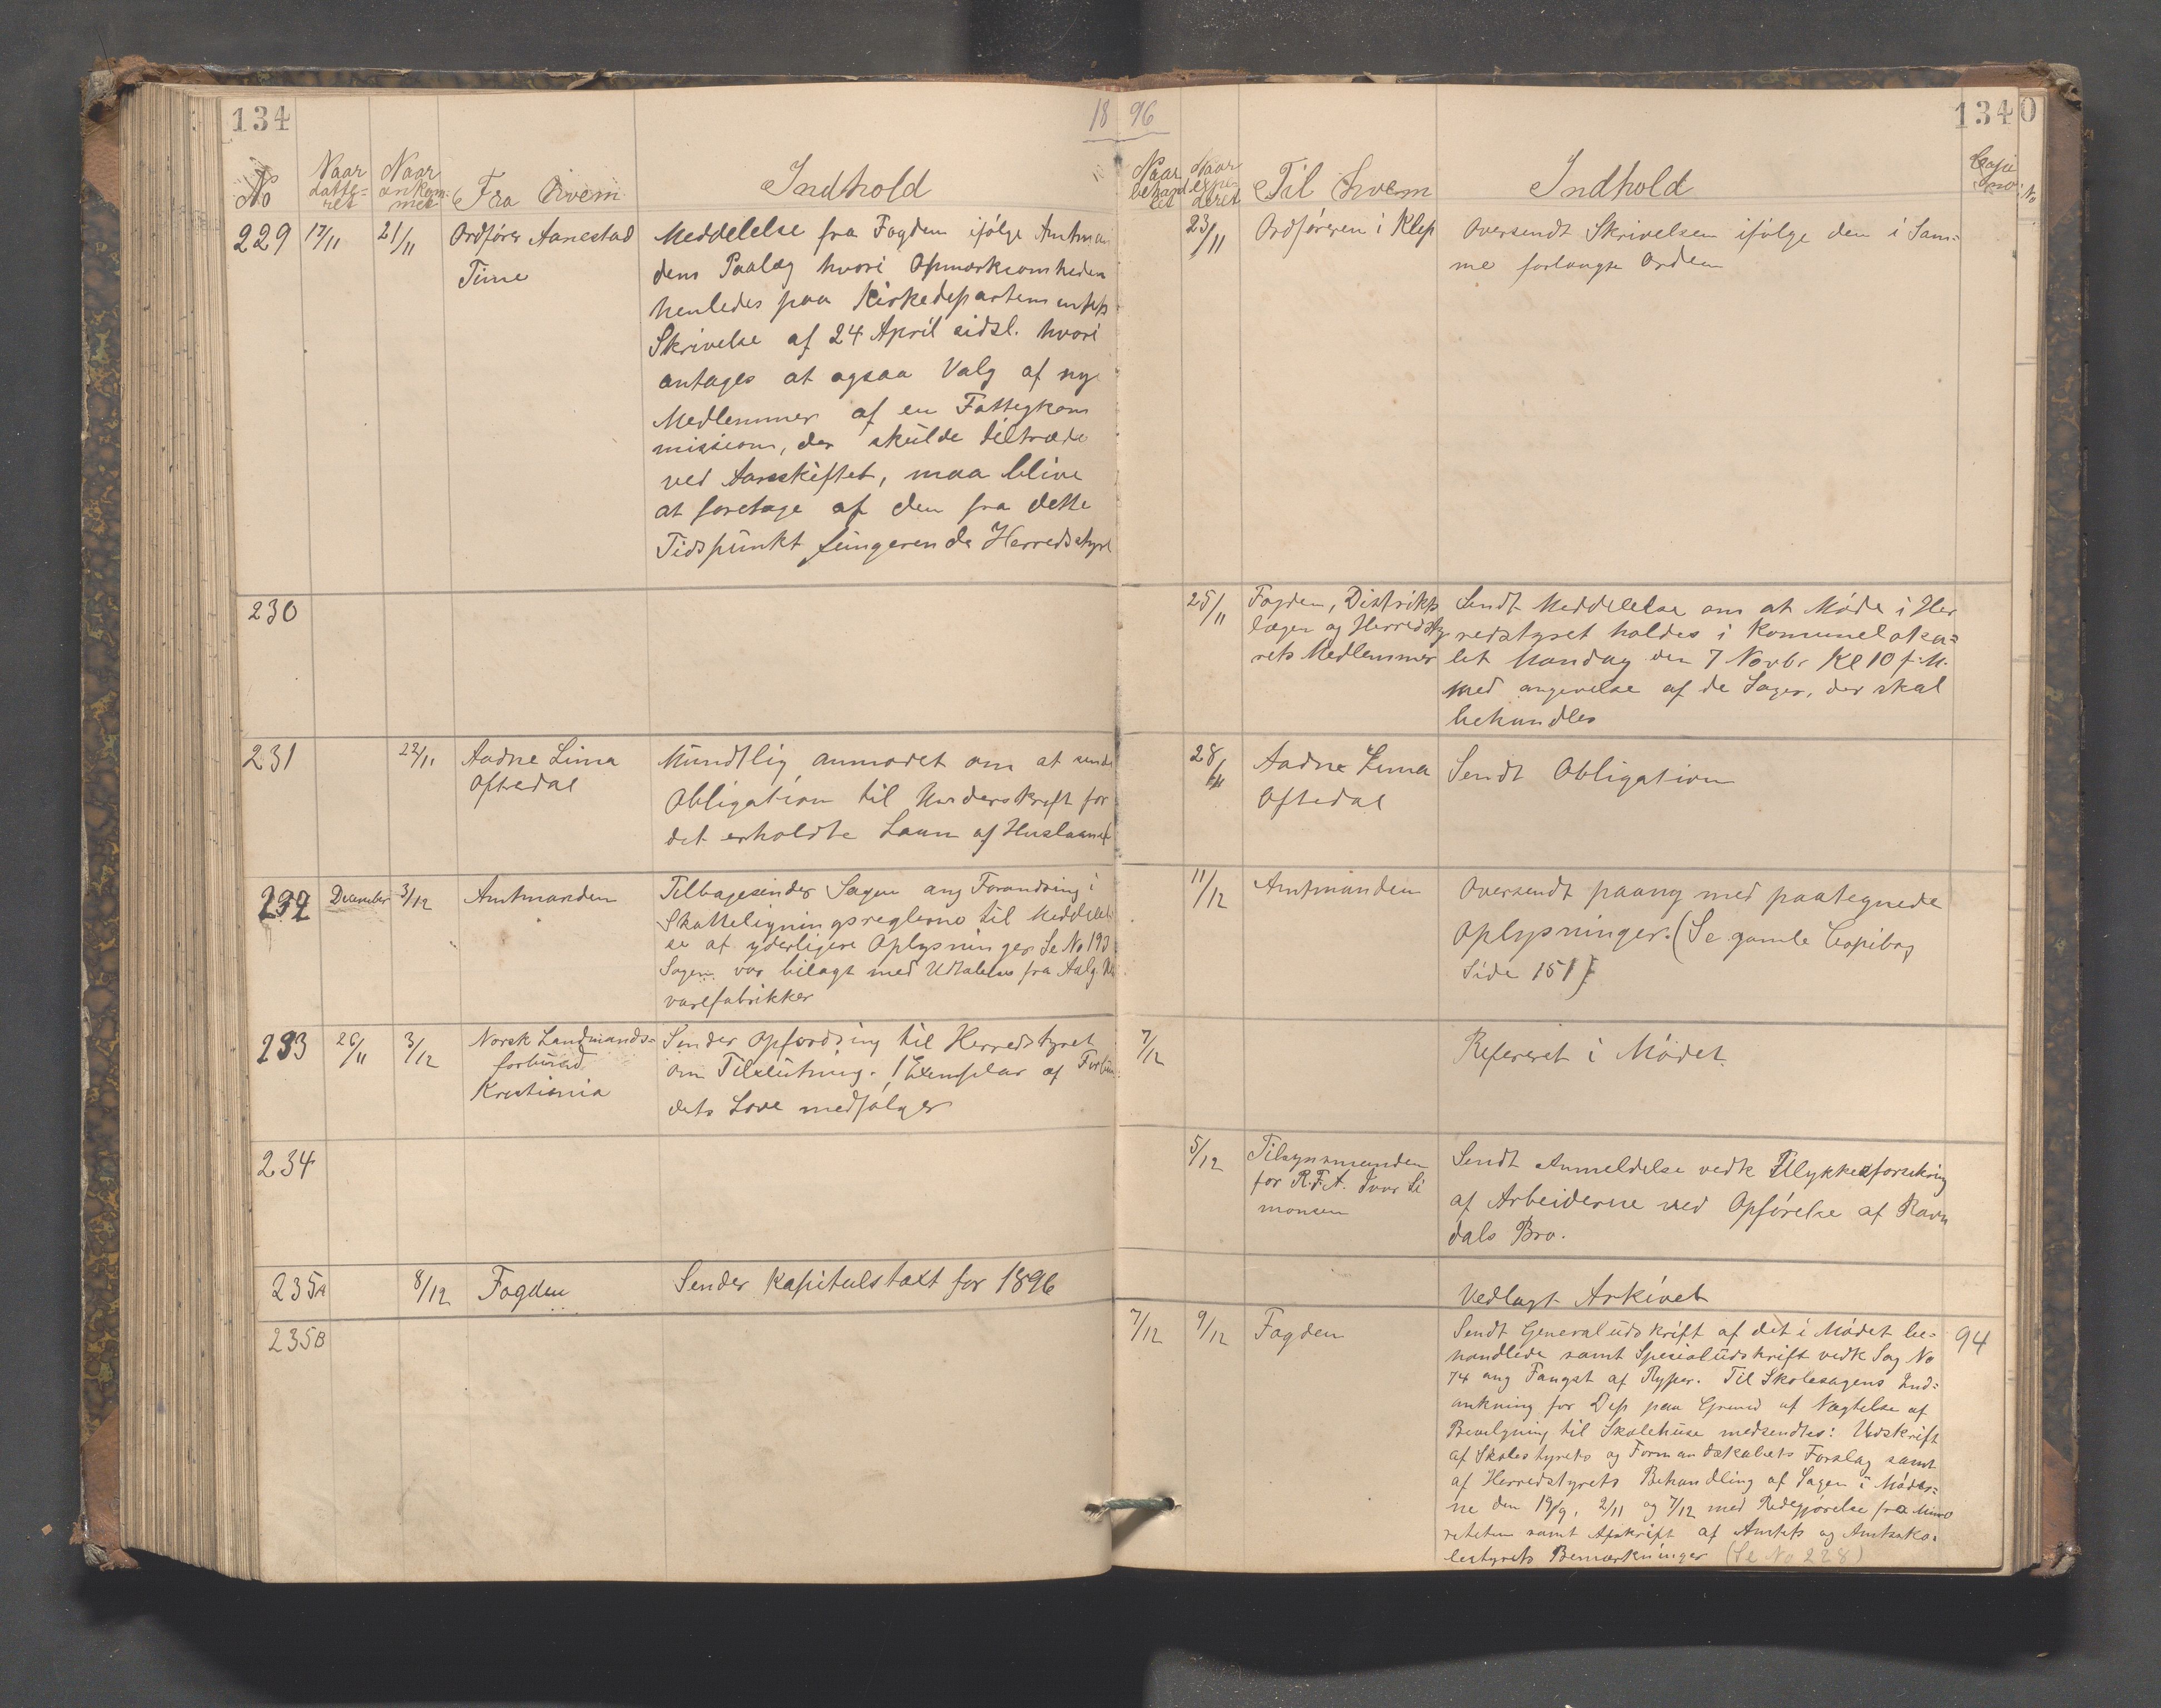 134
18 96
1340
No
Naar datte-ret
Naar ankom-met
Fra hvem
Indhold
Naar behand let
Naar expe-deret
Til hvem
Indhold
Copi
No
229 17/11 21/11 Ordfører Aanestad
Time
Meddelelse fra Fogden ifølge Amtman
dens Paalæg hvori Opmærksomheden
henledes paa Kirkedepartementets
Skrivelse af 24 April sidsl. hvori
antages at ogsaa Valg af nye
Medlemmer af en Fattigkom
mission, der skulde tiltræde
ved Aarsskiftet, maa blive
at foretage af den fra dette
Tidspunkt fungerende Herredstyre
23/11 Ordføreren i Klep
Oversendt Skrivelsen ifølge den i Sam-
me forlangte Orden
230
25/11 Fogden, Distrikts
lægen og Herredsty
rets Medlemmer
Sendt Meddelelse om at Møde i Her
redstyret holdes i Komuneloka-
let Mandag den 7 Novbr Kl 10 f.M.
med angivelse af de Sager, der skal
behandles
231 22/11 Aadne Lima
Oftedal
Mundtlig anmodet om at sende
Obligation til Underskrift for
det erholdte Laan af Huslaanef
28/11 Aadne Lima
Oftedal
Sendt Obligation
232 December 3/12 Amtmanden
Tilbagesender Sagen ang Forandring i
Skatteligningsreglerne til Meddelel
se af yderligere Oplysninger Se No 193
Sagen var bilagt med Udtalelse fra Aalg. Uld
varefabrikker
11/12 Amtmanden
Oversendt paany med paategnede
Oplysninger. (Se gamle Copibog
Side 151)
233 26/11 3/12 Norsk Landmands-
forbund
Kristiania
Sender Opfordring til Herredstyret
om Tilslutning. 1 Exemplar af Forbun
dets Love medfølger
7/12
Refereret i Mødet
234
5/12 Tilsynsmanden
for R.F.A. Ivar Si
monsen
Sendt Anmeldelse vedk Ulykkesforsikring
af Arbeiderne ved Opførelse af Ravn
dals Bro.
235A 8/12 Fogden
Sender Kapitelstaxt for 1896
Vedlagt Arkivet
235B
7/12 9/12 Fogden
Sendt Generaludskrift af det i Mødet be-
handlede samt Spesialudskrift vedk Sag No
74 ang Fangst af Ryper. Til Skolesagens Ind-
ankning for Dep paa Grund af Nægtelse af
Bevilgning til Skolehuse medsendtes: Udskrift
af Skolestyrets og Formandskabets Forslag samt
af Herredstyrets Behandling af Sagen i Møder-
ne den 19/9, 2/11 og 7/12 med Redegjørelse fra Mino
riteten samt Afskrift af Amtets og Amtssko-
lestyrets Bemærkninger (Se No 228)
94